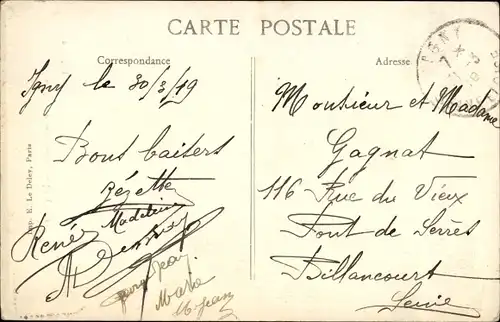 CARTE POSTALE
Correspondance
Adresse
Igny le 30/3/19
Bons baisers
Zézette
Madeleine
Renée
Jean
Marie
Monsieur et Madame
Gagnat
116 Rue du Vieux
Pont de Sèvres
Billancourt
Seine
Imp. E. Le Deley, Paris
IGNY